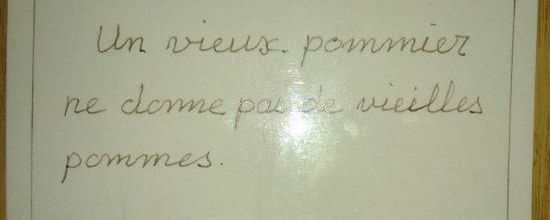 Un vieux pommier
ne donne pas de vieilles
pommes.